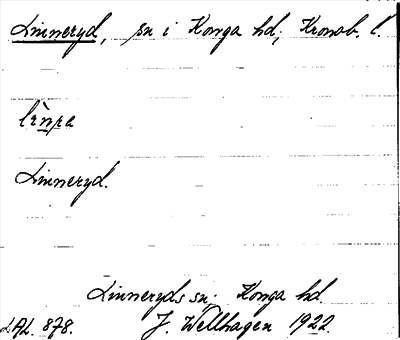 Linneryd, sn i Konga hd, Kronob. l.
Linneryd.
Linneryds sn; Konga hd.
LAL. 878. J. Wellhagen 1922.